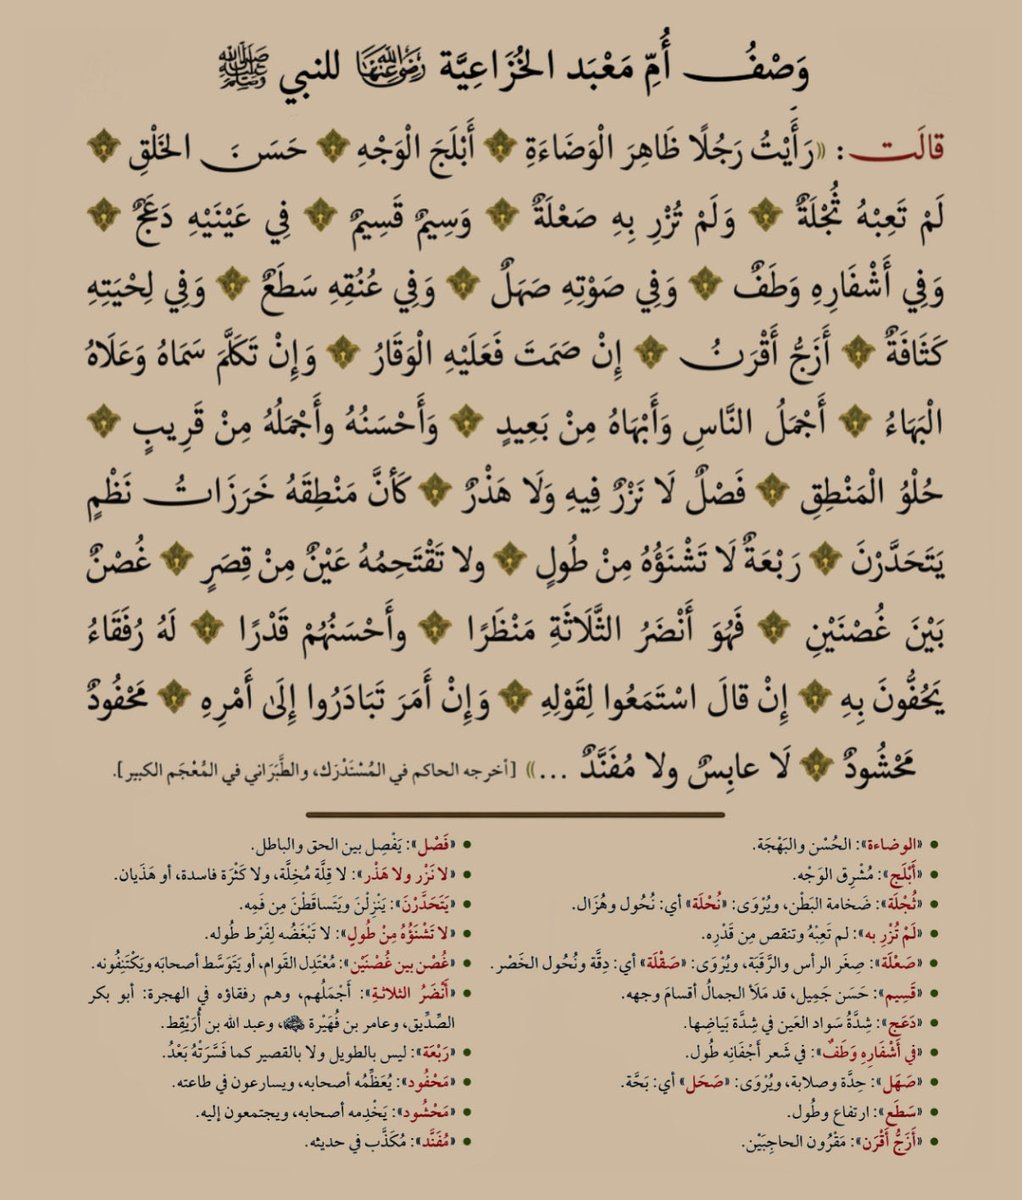 وَصْفُ أُمِّ مَعْبَد الخُزَاعِيَّة رَضِوَاللَّهُ عَنْهَا للنبي ﷺ
قالَت: «رَأَيْتُ رَجُلًا ظَاهِرَ الْوَضَاءَةِ أَبْلَجَ الْوَجْهِ حَسَنَ الخَلْقِ
لَمْ تَعِبْهُ ثُجْلَةٌ وَلَمْ تُزْرِ بِهِ صَعْلَةٌ وَسِيمٌ قَسِيمٌ فِي عَيْنَيْهِ دَعَجٌ
وَفِي أَشْفَارِهِ وَطَفٌ وَفِي صَوْتِهِ صَهَلٌ وَفِي عُنُقِهِ سَطَعٌ وَفِي لِحْيَتِهِ
كَثَافَةٌ أَزَجُّ أَقْرَنُ إِنْ صَمَتَ فَعَلَيْهِ الْوَقَارُ وَإِنْ تَكَلَّمَ سَمَاهُ وَعَلَاهُ
الْبَهَاءُ أَجْمَلُ النَّاسِ وَأَبْهَاهُ مِنْ بَعِيدٍ وَأَحْسَنُهُ وأَجْمَلُهُ مِنْ قَرِيبٍ
حُلْوُ الْمَنْطِقِ فَصْلٌ لَا نَزْرٌ فِيهِ وَلَا هَذْرٌ كَأنَّ مَنْطِقَهُ خَرَزَاتُ نَظْمٍ
يَتَحَدَّرْنَ رَبْعَةٌ لَا تَشْنَؤُهُ مِنْ طُولٍ ولا تَقْتَحِمُهُ عَيْنٌ مِنْ قِصَرٍ غُصْنٌ
بَيْنَ غُصْنَيْنِ فَهُوَ أَنْضَرُ الثَّلَاثَةِ مَنْظَرًا وأَحْسَنُهُمْ قَدْرًا لَهُ رُفَقَاءُ
يَحُفُّونَ بِهِ إِنْ قالَ اسْتَمَعُوا لِقَوْلِهِ وَإِنْ أَمَرَ تَبَادَرُوا إِلَى أَمْرِهِ مَحْفُودٌ
مَحْشُودٌ لَا عابِسٌ ولا مُفَنَّدٌ ...» [أخرجه الحاكم في المُسْتَدْرَك، والطَّبَرَاني في المُعْجَم الكبير].
• «الوضاءة»: الحُسْن والبَهْجَة.
• «أَبْلَج»: مُشْرِق الوَجْه.
• «ثُجْلَة»: ضَخامة البَطْن، ويُرْوَى: «نُحْلَة» أي: نُحُول وهُزَال.
• «لَمْ تُزْرِ به»: لم تَعِبْهُ وتنقص مِن قَدْرِه.
• «صَعْلَة»: صِغَر الرأس والرَّقَبَة، ويُرْوَى: «صَقْلَة» أي: دِقَّة ونُحُول الخَصْر.
• «قَسِيم»: حَسَن جَمِيل، قد مَلَأ الجمالُ أقسامَ وجهه.
• «دَعَج»: شِدَّةُ سَواد العَين في شِدَّة بَيَاضِها.
• «في أَشْفَارِهِ وَطَفٌ»: في شَعر أَجْفَانِه طُول.
• «صَهَل»: حِدَّة وصلابة، ويُرْوَى: «صَحَل» أي: بَحَّة.
• «سَطَع»: ارتفاع وطُول.
• «أَزَجُّ أَقْرَن»: مَقْرُون الحاجِبَيْن.
• «فَصْل»: يَفْصِل بين الحق والباطل.
• «لا نَزْر ولا هَذْر»: لا قِلَّة مُخِلَّة، ولا كَثْرَة فاسدة، أو هَذَيان.
• «يَتَحَدَّرْنَ»: يَنْزِلْنَ ويَتَساقَطْنَ مِن فَمِه.
• «لا تَشْنَؤُهُ مِنْ طُولٍ»: لا تَبْغَضُه لِفَرْط طُوله.
• «غُصْن بين غُصْنَيْن»: مُعْتَدِل القَوام، أو يَتَوَسَّط أصحابَه ويَكْتَنِفُونه.
• «أَنْضَرُ الثلاثةِ»: أَجْمَلُهم، وهم رفقاؤه في الهجرة: أبو بكر
الصِّدِّيق، وعامر بن فُهَيْرة، وعبد الله بن أُرَيْقِط.
• «رَبْعَة»: ليس بالطويل ولا بالقصير كما فَسَّرَتْهُ بَعْدُ.
• «مَحْفُود»: يُعَظِّمُه أصحابه، ويسارعون في طاعته.
• «مَحْشُود»: يَخْدِمه أصحابه، ويجتمعون إليه.
• «مُفَنَّد»: مُكَذَّب في حديثه.